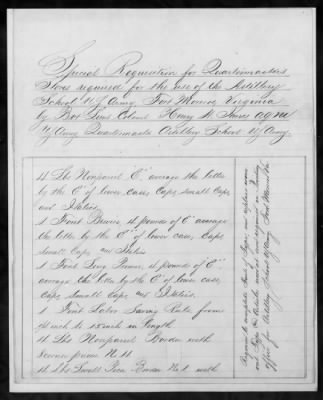 Special Requisition for Quartermasters
Stores required for the use of the Artillery
School U.S. Army, Fort Monroe, Virginia
by Bvt Lieut Colonel Henry
U.S. Army Quartermaster Artillery School U.S. Army.
4 Lbs Nonpareil "C" average the letter
by the "C" of lower case, Caps, small Caps,
and Italics.
1 Font Brevier, 4 pounds of "C" average
the letter by the "C" of lower case, Caps,
small Caps and Italics
1 Font Long Primer, 4 pounds of "C",
average the letter by the "C" of lower case,
Caps, Small Caps and Italics.
1 Font Labor Saving Rule from
inch to 15 inch in length
4 Lbs Nonpareil Border with
corner piece No 11
4 Lbs Small Pica Border No 1 with
Required to complete Fonts of Type and replace worn
out Type, the Articles named are required in Printing
Office of Artillery School U.S. Army, Fort Monroe, Va.